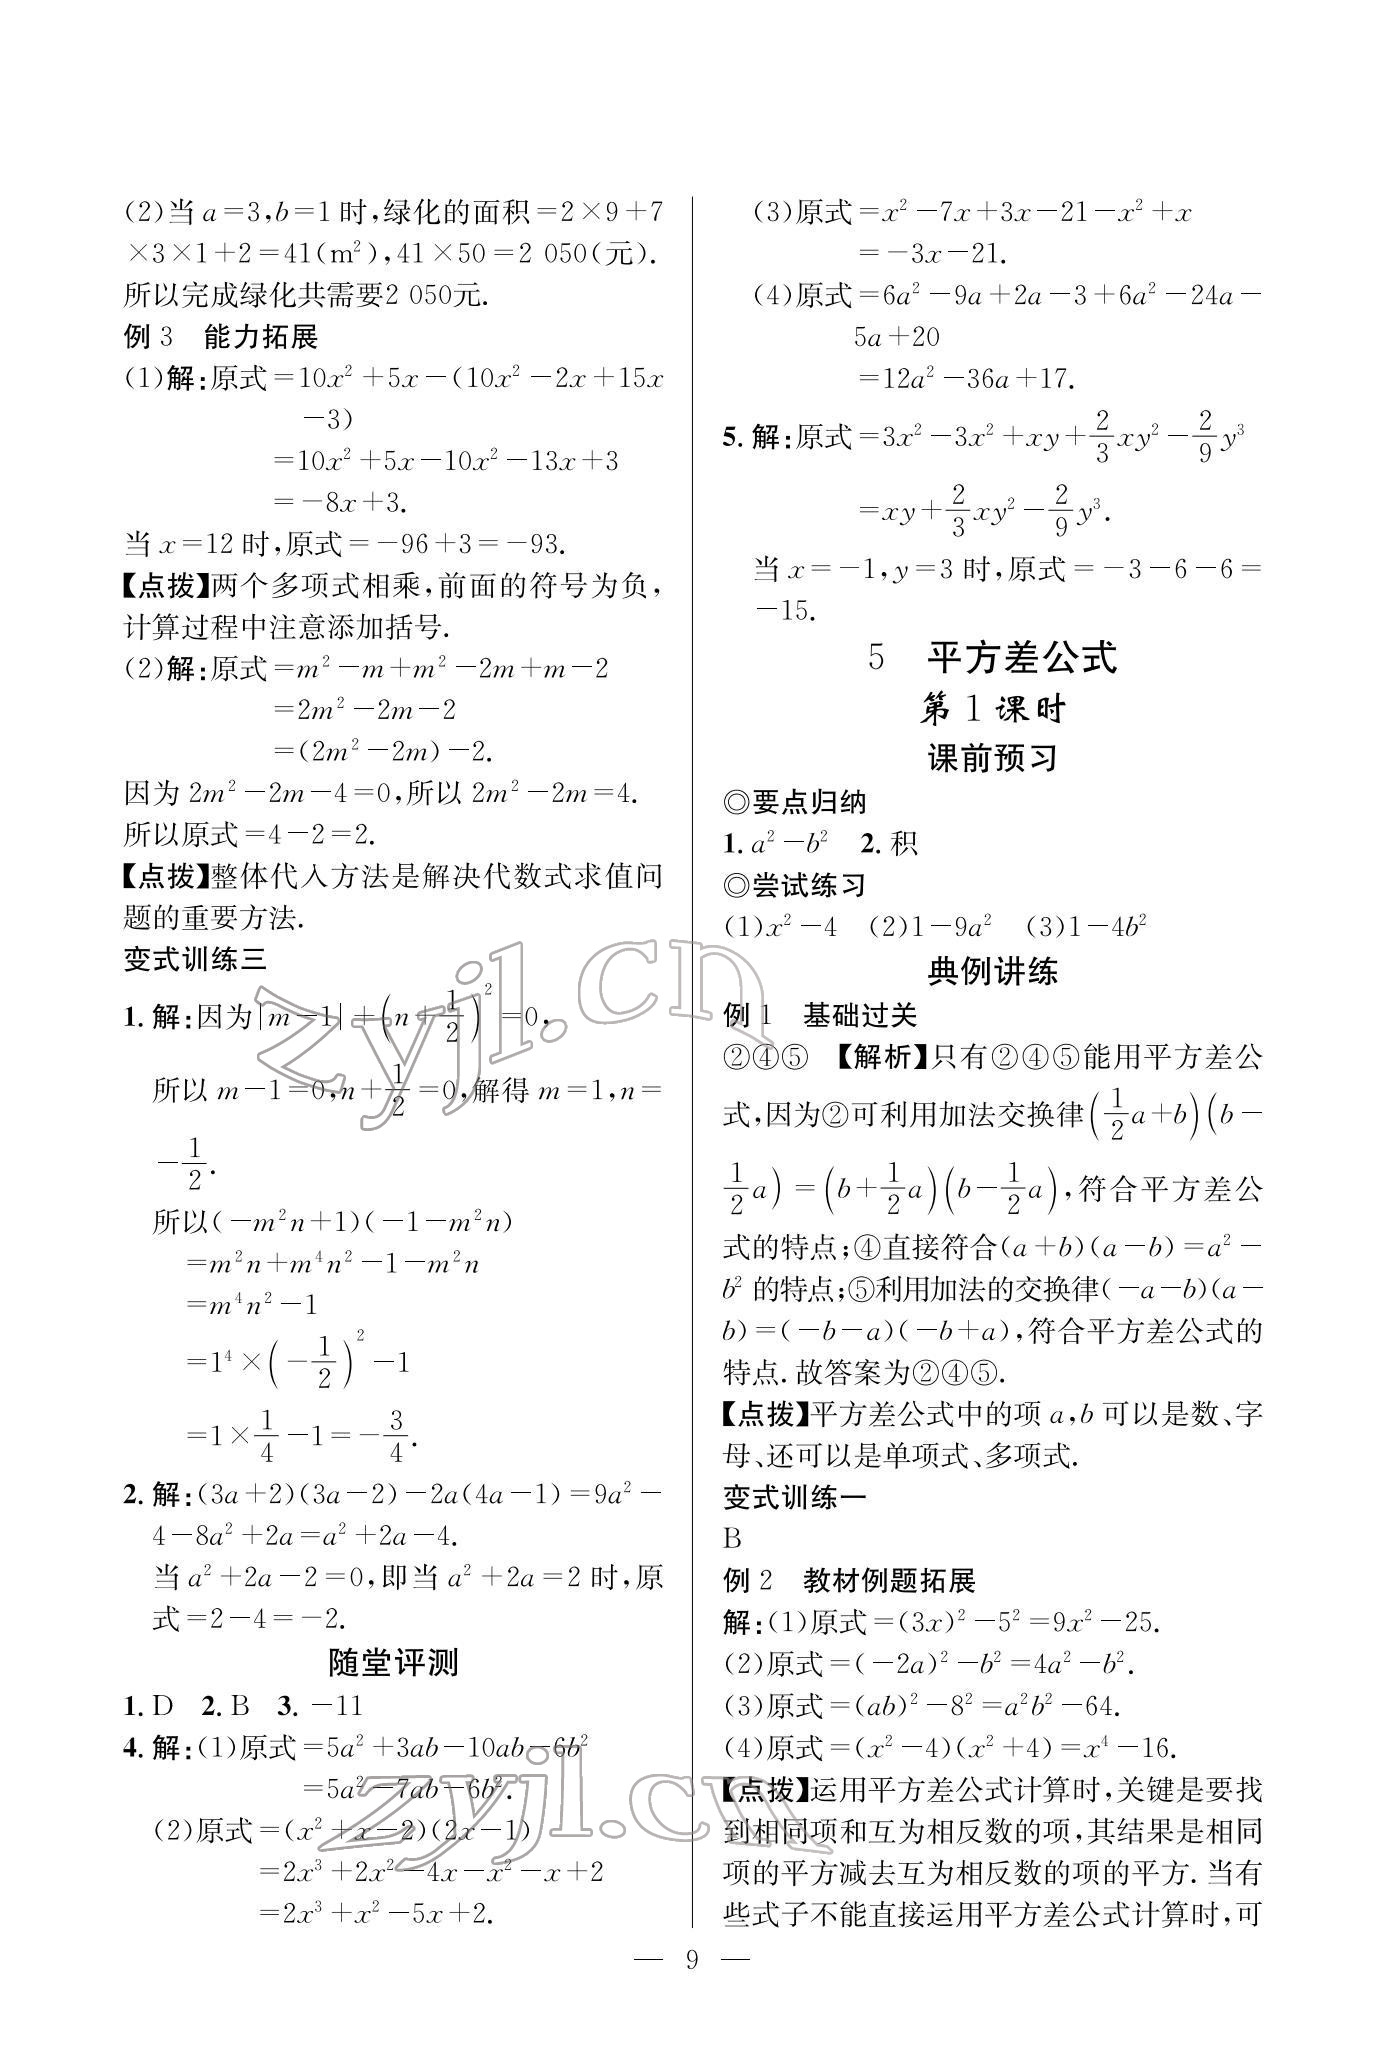 (2)当 a=3,b=1 时,绿化的面积=2×9+7
×3×1+2=41(m²),41×50=2 050(元).
所以完成绿化共需要2 050元.
例 3 能力拓展
(1)解:原式=10x²+5x-(10x²-2x+15x
-3)
=10x²+5x-10x²-13x+3
=-8x+3.
当 x=12 时,原式=-96+3=-93.
【点拨】两个多项式相乘,前面的符号为负,
计算过程中注意添加括号.
(2)解:原式=m²-m+m²-2m+m-2
=2m²-2m-2
=(2m²-2m)-2.
因为 2m²-2m-4=0,所以 2m²-2m=4.
所以原式=4-2=2.
【点拨】整体代入方法是解决代数式求值问
题的重要方法.
变式训练三
1. 解:因为|m-1|+(n+1/2)²=0,
所以 m-1=0,n+1/2=0,解得 m=1,n=
-1/2.
所以(-m²n+1)(-1-m²n)
=m²n+m⁴n²-1-m²n
=m⁴n²-1
=1⁴×(-1/2)²-1
=1×1/4-1=-3/4.
2. 解:(3a+2)(3a-2)-2a(4a-1)=9a²-
4-8a²+2a=a²+2a-4.
当 a²+2a-2=0,即当 a²+2a=2 时,原
式=2-4=-2.
随堂评测
1. D 2. B 3. -11
4. 解:(1)原式=5a²+3ab-10ab-6b²
=5a²-7ab-6b².
(2)原式=(x²+x-2)(2x-1)
=2x³+2x²-4x-x²-x+2
=2x³+x²-5x+2.
(3)原式=x²-7x+3x-21-x²+x
=-3x-21.
(4)原式=6a²-9a+2a-3+6a²-24a-
5a+20
=12a²-36a+17.
5. 解:原式=3x²-3x²+xy+2/3xy²-2/9y³
=xy+2/3xy²-2/9y³.
当 x=-1,y=3 时,原式=-3-6-6=
-15.
5 平方差公式
第 1 课时
课前预习
◎要点归纳
1. a²-b² 2. 积
◎尝试练习
(1)x²-4 (2)1-9a² (3)1-4b²
典例讲练
例 1 基础过关
②④⑤ 【解析】只有②④⑤能用平方差公
式,因为②可利用加法交换律(1/2a+b)(b-
1/2a)=(b+1/2a)(b-1/2a),符合平方差公
式的特点;④直接符合(a+b)(a-b)=a²-
b² 的特点;⑤利用加法的交换律(-a-b)(a-
b)=(-b-a)(-b+a),符合平方差公式的
特点. 故答案为②④⑤.
【点拨】平方差公式中的项 a,b 可以是数、字
母、还可以是单项式、多项式.
变式训练一
B
例 2 教材例题拓展
解:(1)原式=(3x)²-5²=9x²-25.
(2)原式=(-2a)²-b²=4a²-b².
(3)原式=(ab)²-8²=a²b²-64.
(4)原式=(x²-4)(x²+4)=x⁴-16.
【点拨】运用平方差公式计算时,关键是要找
到相同项和互为相反数的项,其结果是相同
项的平方减去互为相反数的项的平方. 当有
些式子不能直接运用平方差公式计算时,可
— 9 —
zyjl.cn
zyjl.cn